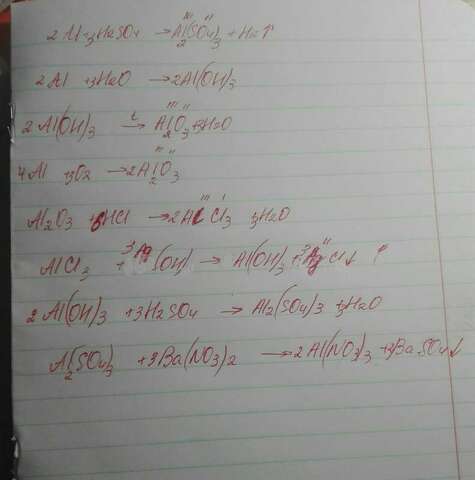 2Al+3H2SO4 →Al2(SO4)3 +H2↑
2Al +3H2O →2Al(OH)3
2Al(OH)3 t→ Al2O3+3H2O
4Al +3O2 →2Al2O3
Al2O3 +6HCl →2AlCl3 +3H2O
AlCl3 +3Ag(OH) → Al(OH)3+3AgCl↓ ↑
2Al(OH)3 +3H2SO4 →Al2(SO4)3 +3H2O
Al2(SO4)3 +3Ba(NO3)2 →2Al(NO3)3 +3BaSO4↓